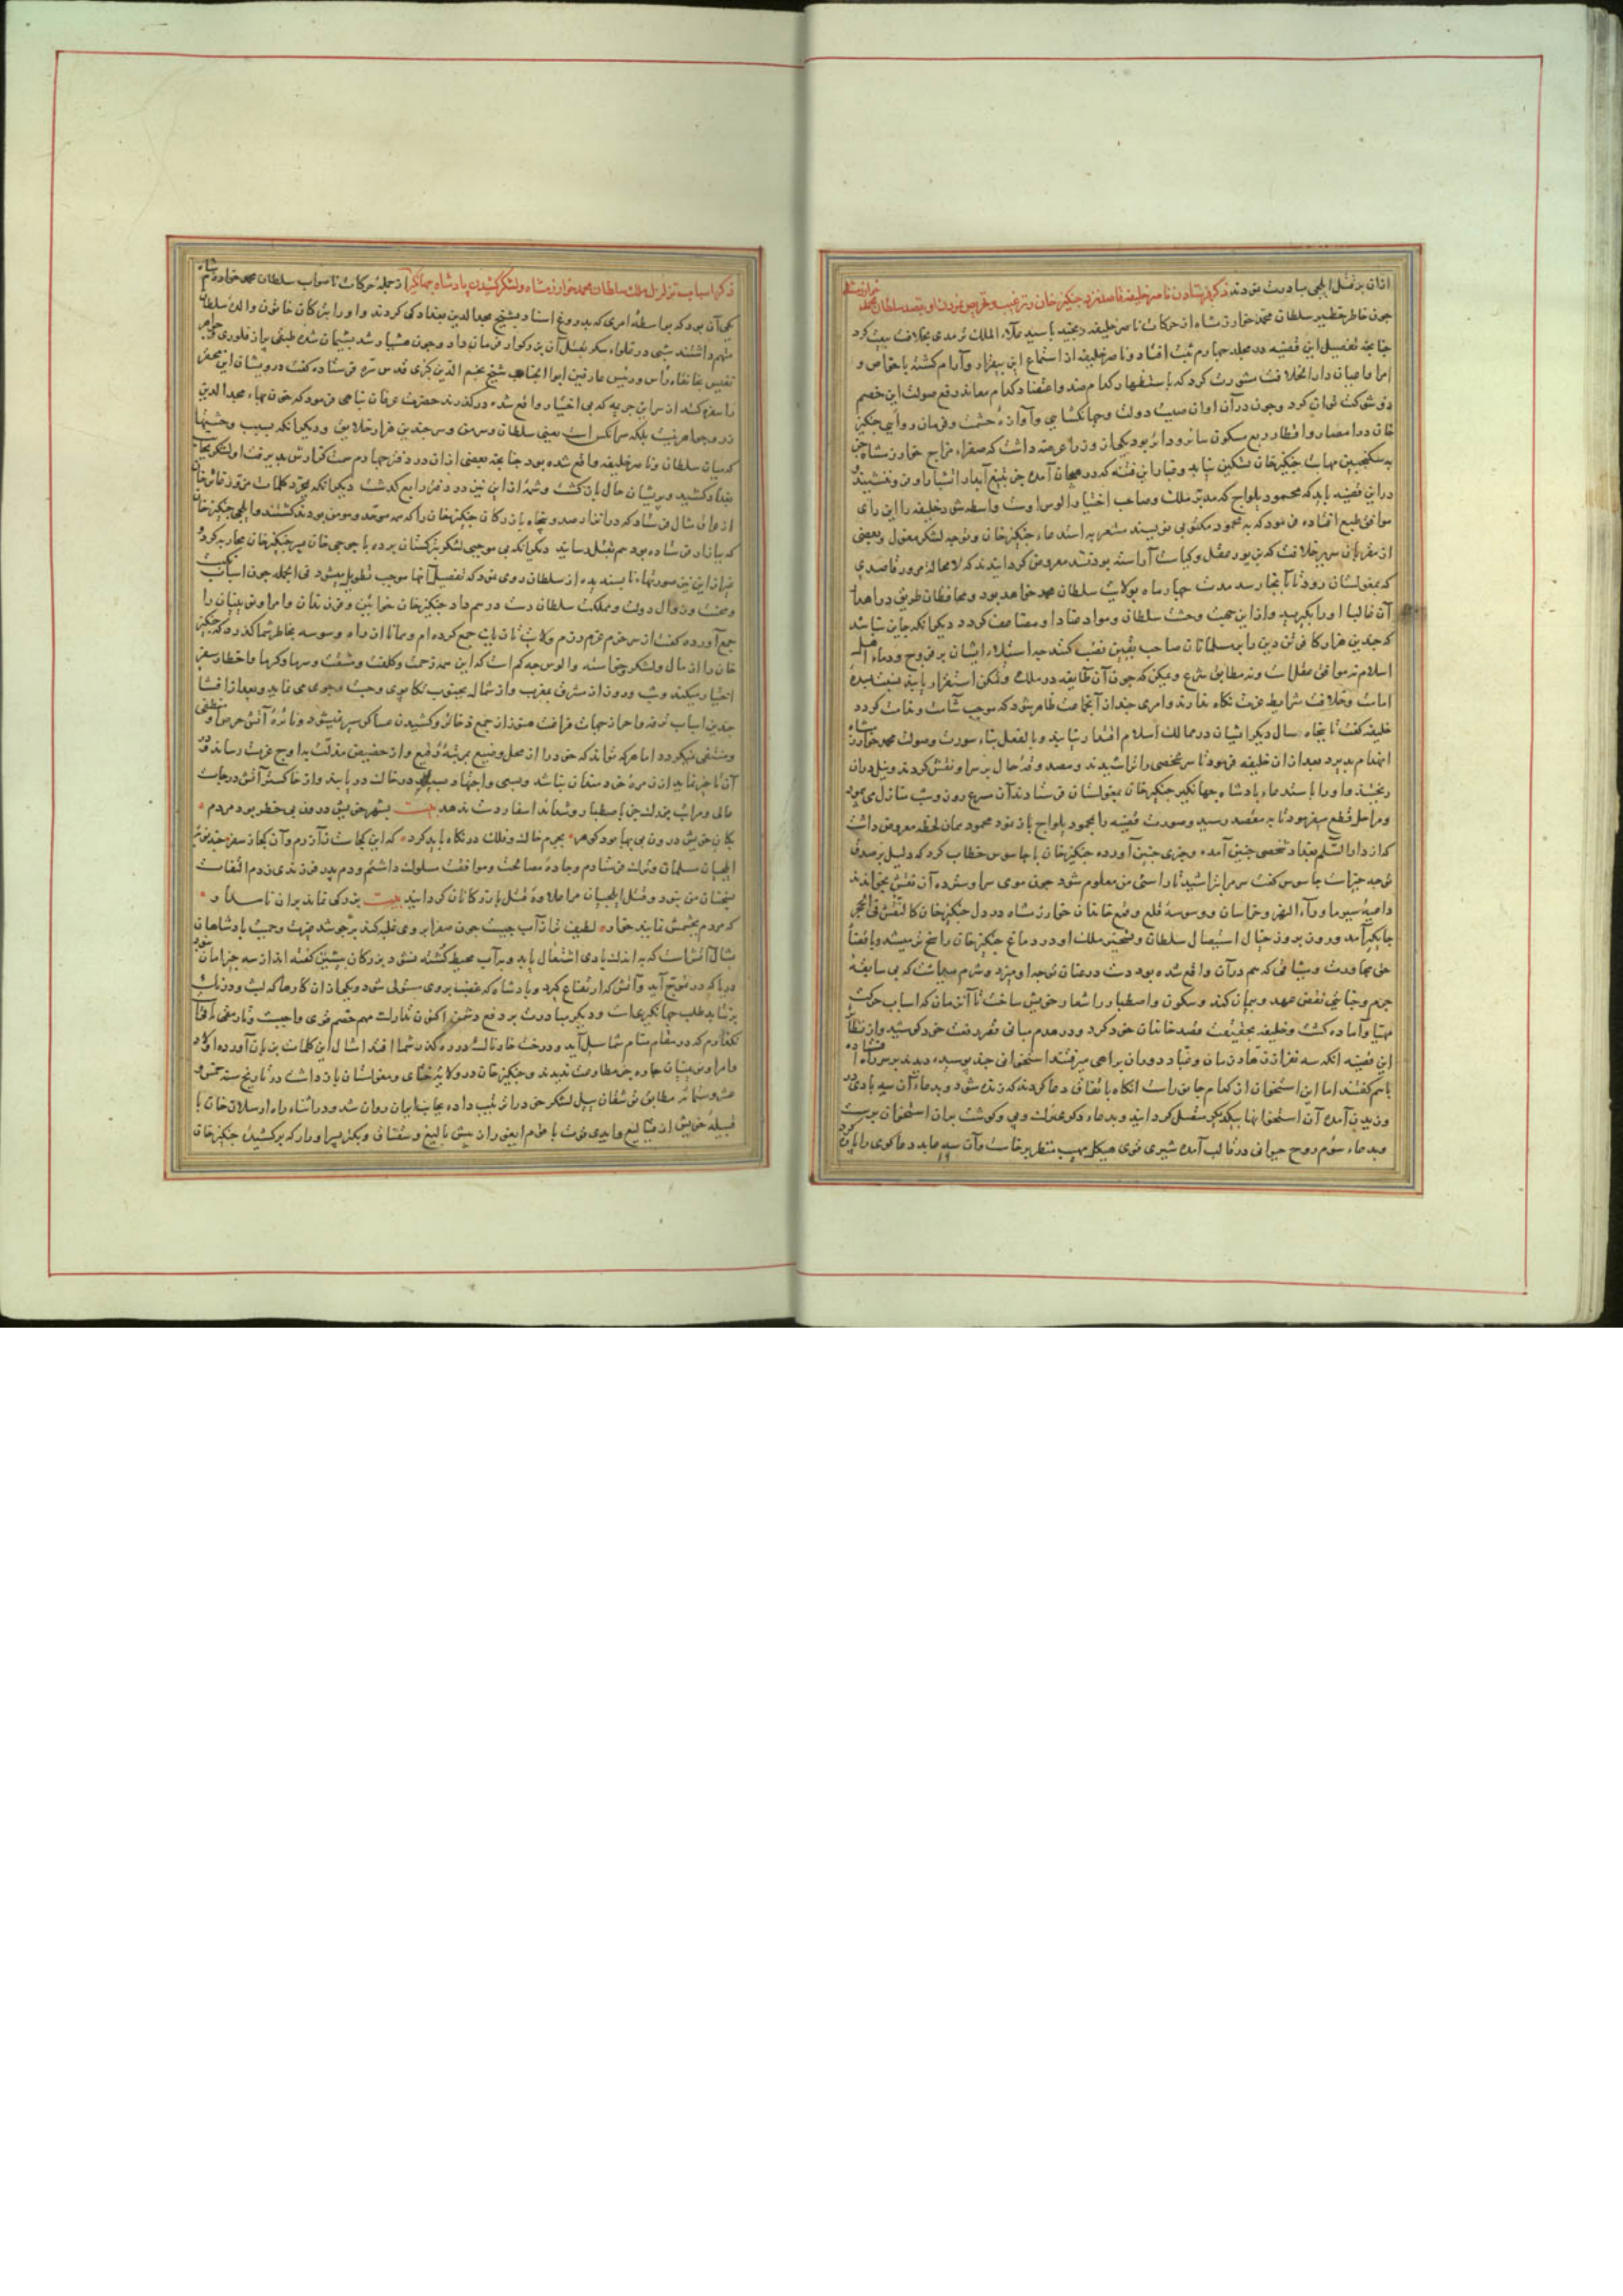 ازان بر قتل ایلچی مبادرت نمودند ذکر فرستادن ناصر خلیفه قاصد نزد جنکیز خان و ترغیب و تحریص نمودن او بقصد سلطان محمد خوارزمشاه
چون خاطر خطیر سلطان محمد خوارزمشاه از حرکات ناصر خلیفه رنجید با سید علاء الملک ترمدی بخلافت بیعت کرد
چنانچه تفصیل این قضیه در مجلد چهارم ثبت افتاد و ناصر خلیفه از استماع این بیقرار و آرام کشته با خواص و
امرا و اعیان دار الخلافت مشورت کرد که باستظهار کدام صند و اعتضاد کدام معاند دفع صولت این خصم
ذی شوکت توان کرد و چون درآن اوان صیت دولت و جهانکشایی و آوازهٔ حشمت و فرمان روایی جنکیز
خان در امصار و اقطار ربع مسکون سائر و دائر بود یکی از وزراء عرضه داشت که صفراء مزاج خوارزمشاه جز
به سکنجبین مهابت جنکیز خان تسکین نیابد و غبار این فتنه که در هیجان آمده جز بتیغ آبدار اتشبار او فرو ننشیند و
درین قضیه باید که محمود یلواج که مدبر ملک و صاحب اختیار الوس اوست واسطه شود خلیفه را این رای
موافق طبع افتاده فرمود که به محمود مکتوبی نویسند مشعر به استدعاء جنکیز خان و توجه لشکر مغول و بعضی
از مقربان سریر خلافت که بزیور عقل و کیاست آراسته بودند معروض کردانیدند که لا محاله مرور قاصدی
که بمغولستان رود تا آنجا رسد مدت چهار ماه بولایت سلطان محمد خواهد بود و محافظان طریق در راهها
آن غالبا او را بکیرند و ازین جهت وحشت سلطان و مواد عناد او مضاعف کردد دیکر انکه جایز نباشد
که چندین هزار کافر بی دین را بر مسلمانان صاحب یقین نصب کنند چه استیلاء ایشان بر فروج و دماء اهل
اسلام نه موافق عقل است و نه مطابق شرع و ممکن که چون آن طایفه در ملک و تمکن استقرار یابند نسبت بسدهٔ
امامت و خلافت شرایط عزت نکاه ندارند و امری چند از آنجماعت ظاهر شود که موجب شآمت و غامت کردد
خلیفه کفت تا پنجاه سال دیکر اشیان در ممالک اسلام اقتدار نیابند و بالفعل بناء سورت و صولت محمد خوارزمشاه
انهدام پذیرد بعد ازان خلیفه فرمود تا سر شخصی را تراشیدند و مقصد و شرح حال بر سر او نقش کردند و نیل دران
ریختند و او را با ستدعاء پادشاه جهانکیر جنکیز خان بمغولستان فرستادند آن سرع رو روز و شب منازل می پیمود
و مراحل قطع میفرمود تا به مقصد رسید و صورت قضیه را بمحمود یلواج باز نمود محمود همان لحظه معروض داشت
که از دار السلام بغداد شخصی چنین آمده و خبری چنین آورده جنکیز خان با جاسوس خطاب کرد که دلیل بر صدق
توجه چیزست جاسوس کفت سر مرا بتراشید تا راستی من معلوم شود چون موی سر او سترده آن نقش بخواندند
داعیهٔ سیر ماوراء النهر و خراسان و وسوسهٔ قلع و قمع خاندان خوارزمشاه در دل جنکیز خان کالنقش فی الحجر
جایکیر آمد و روز بروز خیال استیصال سلطان و تسخیر ملک او در دماغ جنکیز خان راسخ تر میشد و با قضا
حق مجاورت و میثاقی که هم درآن واقع شده بود دست در عنان توجه او میزد و شرم میداشت که بی سابقهٔ
جرم و جنایتی نقض عهد و پیمان کند و سکون و اصطبار را شعار خویش ساخت تا آن زمان که اسباب حرکت
مهیا و آماده کشت و خلیفه بحقیقت قصد خاندان خود کرد و در هدم مبانی قصر دفت خود کوشید و از نظایر
این قضیه انکه سه نفر از زهاد زمان و عباد دوران براهی میرفتند استخوانی چند پوسیده دیدند بر سر راه افتاده
باهم کفتند اما این استخوان از کدام جانورست انکاه باتفاق دعا کردند که زنده شود و بدعاء آن سه بادی در
وزیدن آمده آن استخوانها بیکدیکر متصل کردانید و بدعاء دکر عضلات و پی و کوشت بران استخوان برست
و بدعاء سوم روح حیوانی در قالب آمده شیری قوی هیکل مهیب منظر برخاست و آن سه عابد دعا کوی را پاره کرد
ذکر اسباب تزلزل ملک سلطان محمد خوارزمشاه و لشکر کشیدن پادشاه جهانکیر از جمله حرکات ناصواب سلطان محمد خوارزمشاه
یکی آن بود که بواسطه امری که بدروغ اسناد بشیخ مجد الدین بغدادی کردند و او را بترکان خاتون والدهٔ سلطان
متهم داشتند شبی در غلواء سکر بقتل آن بزرکوار فرمان داد و چون هشیار شد پشیمان شده طبقی پر از فلوری و جواهر
نفیس بخانقاه رأس و رئیس عارفین ابو الجناب شیخ نجم الدین کبری قدس سره فرستاده کفت درویشان این محقر
را سفره کنند از سر این جریمه که بی اختیار واقع شده درکذرند حضرت عرفان پناهی فرمود که خون بهاء مجد الدین
زر و جواهر نیست بلکه سر آنکس است یعنی سلطان و سر من و سر چندین هزار خلایق و دیکر انکه بسبب وحشتها
که میان سلطان و ناصر خلیفه واقع شده بود چنانچه بعضی ازان در دفتر چهارم سمت کذارش پذیرفت او لشکر بجانب
بغداد کشید و پریشان حال بازکشت و شمهٔ ازین نیز در دفتر رابع کدشت دیکر انکه بمجرد کلمات مزور غایر خان
از وان مثال فرستاد که در اترار صد و پنجاه بازرکان جنکیز خان را که همه موحد و مومن بودند بکشتند و ایلچی جنکیز خان
که بازان فرستاده بود هم بقتل رسانید دیکر انکه بی موجبی لشکر بترکستان برده با جوجی خان پسر جنکیز خان محاربه کرد و
غیر ازین نیز صورتهاء ناپسندیده از سلطان روی نمود که تفصیل آنها موجب تطویل میشود فی الجمله چون اسباب نکبت
و محنت و زوال دولت و مملکت سلطان دست درهم داد جنکیز خان خواتین و فرزندان و امرا و نویینان را
جمع آورده کفت از سر حزم عزم رزم ولایت تازیان جمع کرده ام و همانا ازان راه وسوسه بخاطر شما کذرد که جنکیز
خان را از مال و لشکر و خواسته و الوس چه کم است که این همه زحمت و کلفت و مشقت و سرما و کرما و اخطار سفر
اختیار میکند و شب و روز از مشرق بمغرب و از شمال بجنوب تکاپوی و جست و جوی می نماید و بعد از افشا
چندین اسباب ترفه و احراز جهات فراغت هنوز از جمع ذخائر و کشیدن عساکر سیر نمیشود و نائرهٔ آتش حرص او منطفی
و منتفی نمیکردد اما هرکه تواند که خود را از محل وضیع بمرتبهٔ رفیع و از حضیض مذلت به اوج عزت رساند و در
آن تاخیر نماید از زمرهٔ خردمندان نباشد و بسعی و اجتهاد سبیکه در خاک دریابند و از خاکستر آتش درجات
عالی و مراتب بزرک جز باصطبار و شدائد اسفار دست ندهد بیت بشهر خویش درون بی خطر بود مردم *
بکان خویش درون بی بها بود کوهر * بجرم خاک و فلک در نکاه باید کرد * که این کجاست ز آرام و آن کجا ز سفر هرچند من
ایلچیان مسلمان و ترک فرستادم و جادهٔ مصالحت و موافقت سلوک داشتم و دم پدر فرزندی زدم التفات
بسخنان من ننمود و قتل ایلچیان مرا علاوهٔ قتل بازرکانان کردانید بیت بزرکی نماند بران ناسلا و *
که مردم بچشمش نماید خوار * لطیف تر از آب چیست چون صفرا بر وی غلبه کند بر جوشد غیرت و حمیت پادشاهان
بمثال آتش است که به اندک بادی اشتعال یابد و بر آب محیط کشته نشود بزرکان پیشین کفته اند از سه چیز امان نبود
دریا که در تموج آید و آتش که ارتفاع کیرد و پادشاه که غضب بر وی مستولی شود و یکی از ان کارها که لیت و لعل
برنتابد طلب جهانکیری است و دیکر مبادرت بر دفع دشمن اکنون تدارک مهم خصم قوی واجبست
نکدارم که در مقام شما سیل آید و درخت خار و خاشاک درو ده کذر شما افتد امثال این کلمات بزبان آورده اولاد
و امرا و نویینان چاره جز مطاوعت ندیدند و جنکیز خان در ولایت ختای و مغولستان باز داشت در تاریخ سنه خمس و
عشر و ستمائه مطابق توشقان ییل لشکر خود را ترتیب داده بجانب ایران روان شد و در اثناء راه ارسلان خان با
قبیلهٔ خویش از قیالیغ و ایدی قوت با قوم ایغور از بیش بالیغ و سقناق و بکتر پسر او را که برکشیدهٔ جنکیز خان